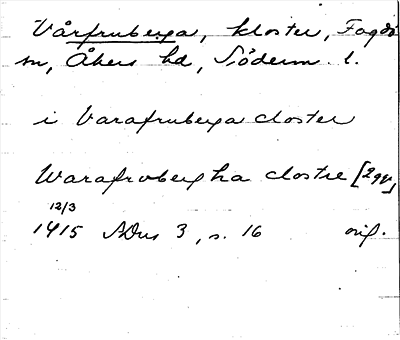 Vårfruberga, kloster, Fogdö
sn, Åkers hd, Söderm. l.
i Varafruberga closter
Warafrvbergha clostre [2 ggr]
12/3
1415 SDns 3, s. 16 orig.